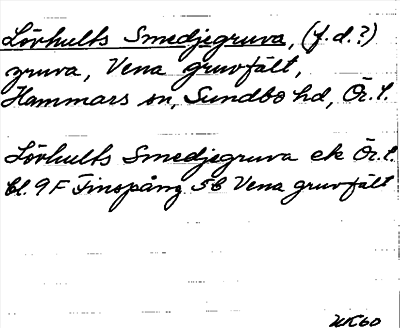 Lövhults Smedjegruva, (f.d.?)
gruva, Vena gruvfält,
Hammars sn, Sundbo hd, Ör.l.
Lövhults Smedjegruva ek Ör.l.
bl. 9F Finspång SB Vena gruvfält
WK60